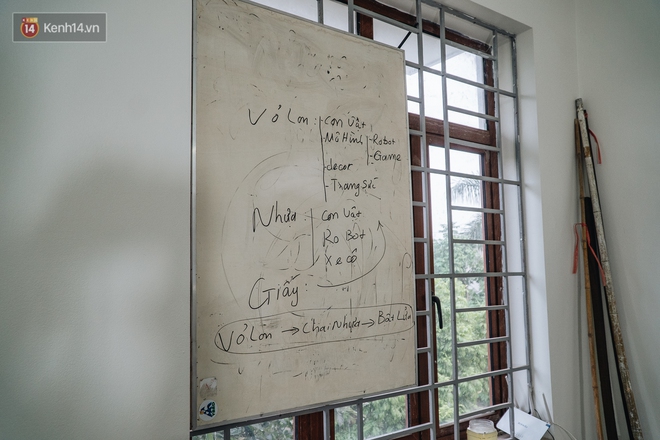 14 Kenh14.vn
Vỏ Lon : - Con Vật
- Mô Hình - Robot
- Game
- decor
- Trang Sức
Nhựa : Con Vật
Ro Bốt
Xe cộ
Giấy :
Vỏ Lon → Chai Nhựa → Bật Lửa